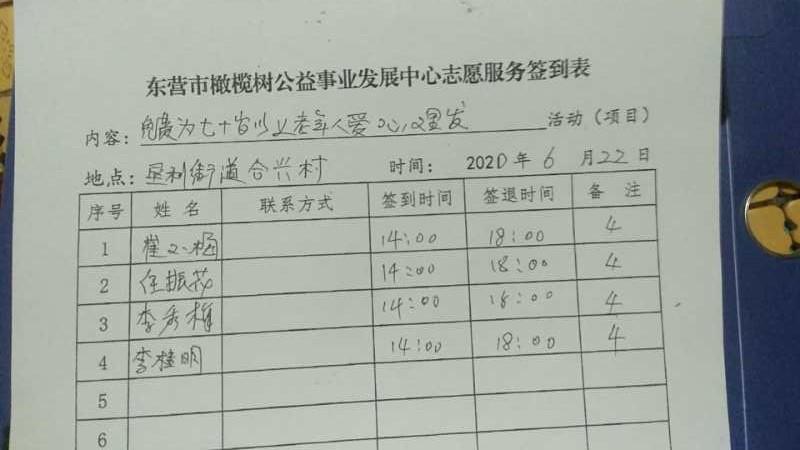 东营市橄榄树公益事业发展中心志愿服务签到表
内容：免费为七十岁以上老年人爱心理发活动（项目）
地点：垦利街道合兴村 时间：2020年6月22日
序号 姓名 联系方式 签到时间 签退时间 备注
1 14:00 18:00 4
2 任振花 14:00 18:00 4
3 李秀梅 14:00 18:00 4
4 李桂明 14:00 18:00 4
5
6